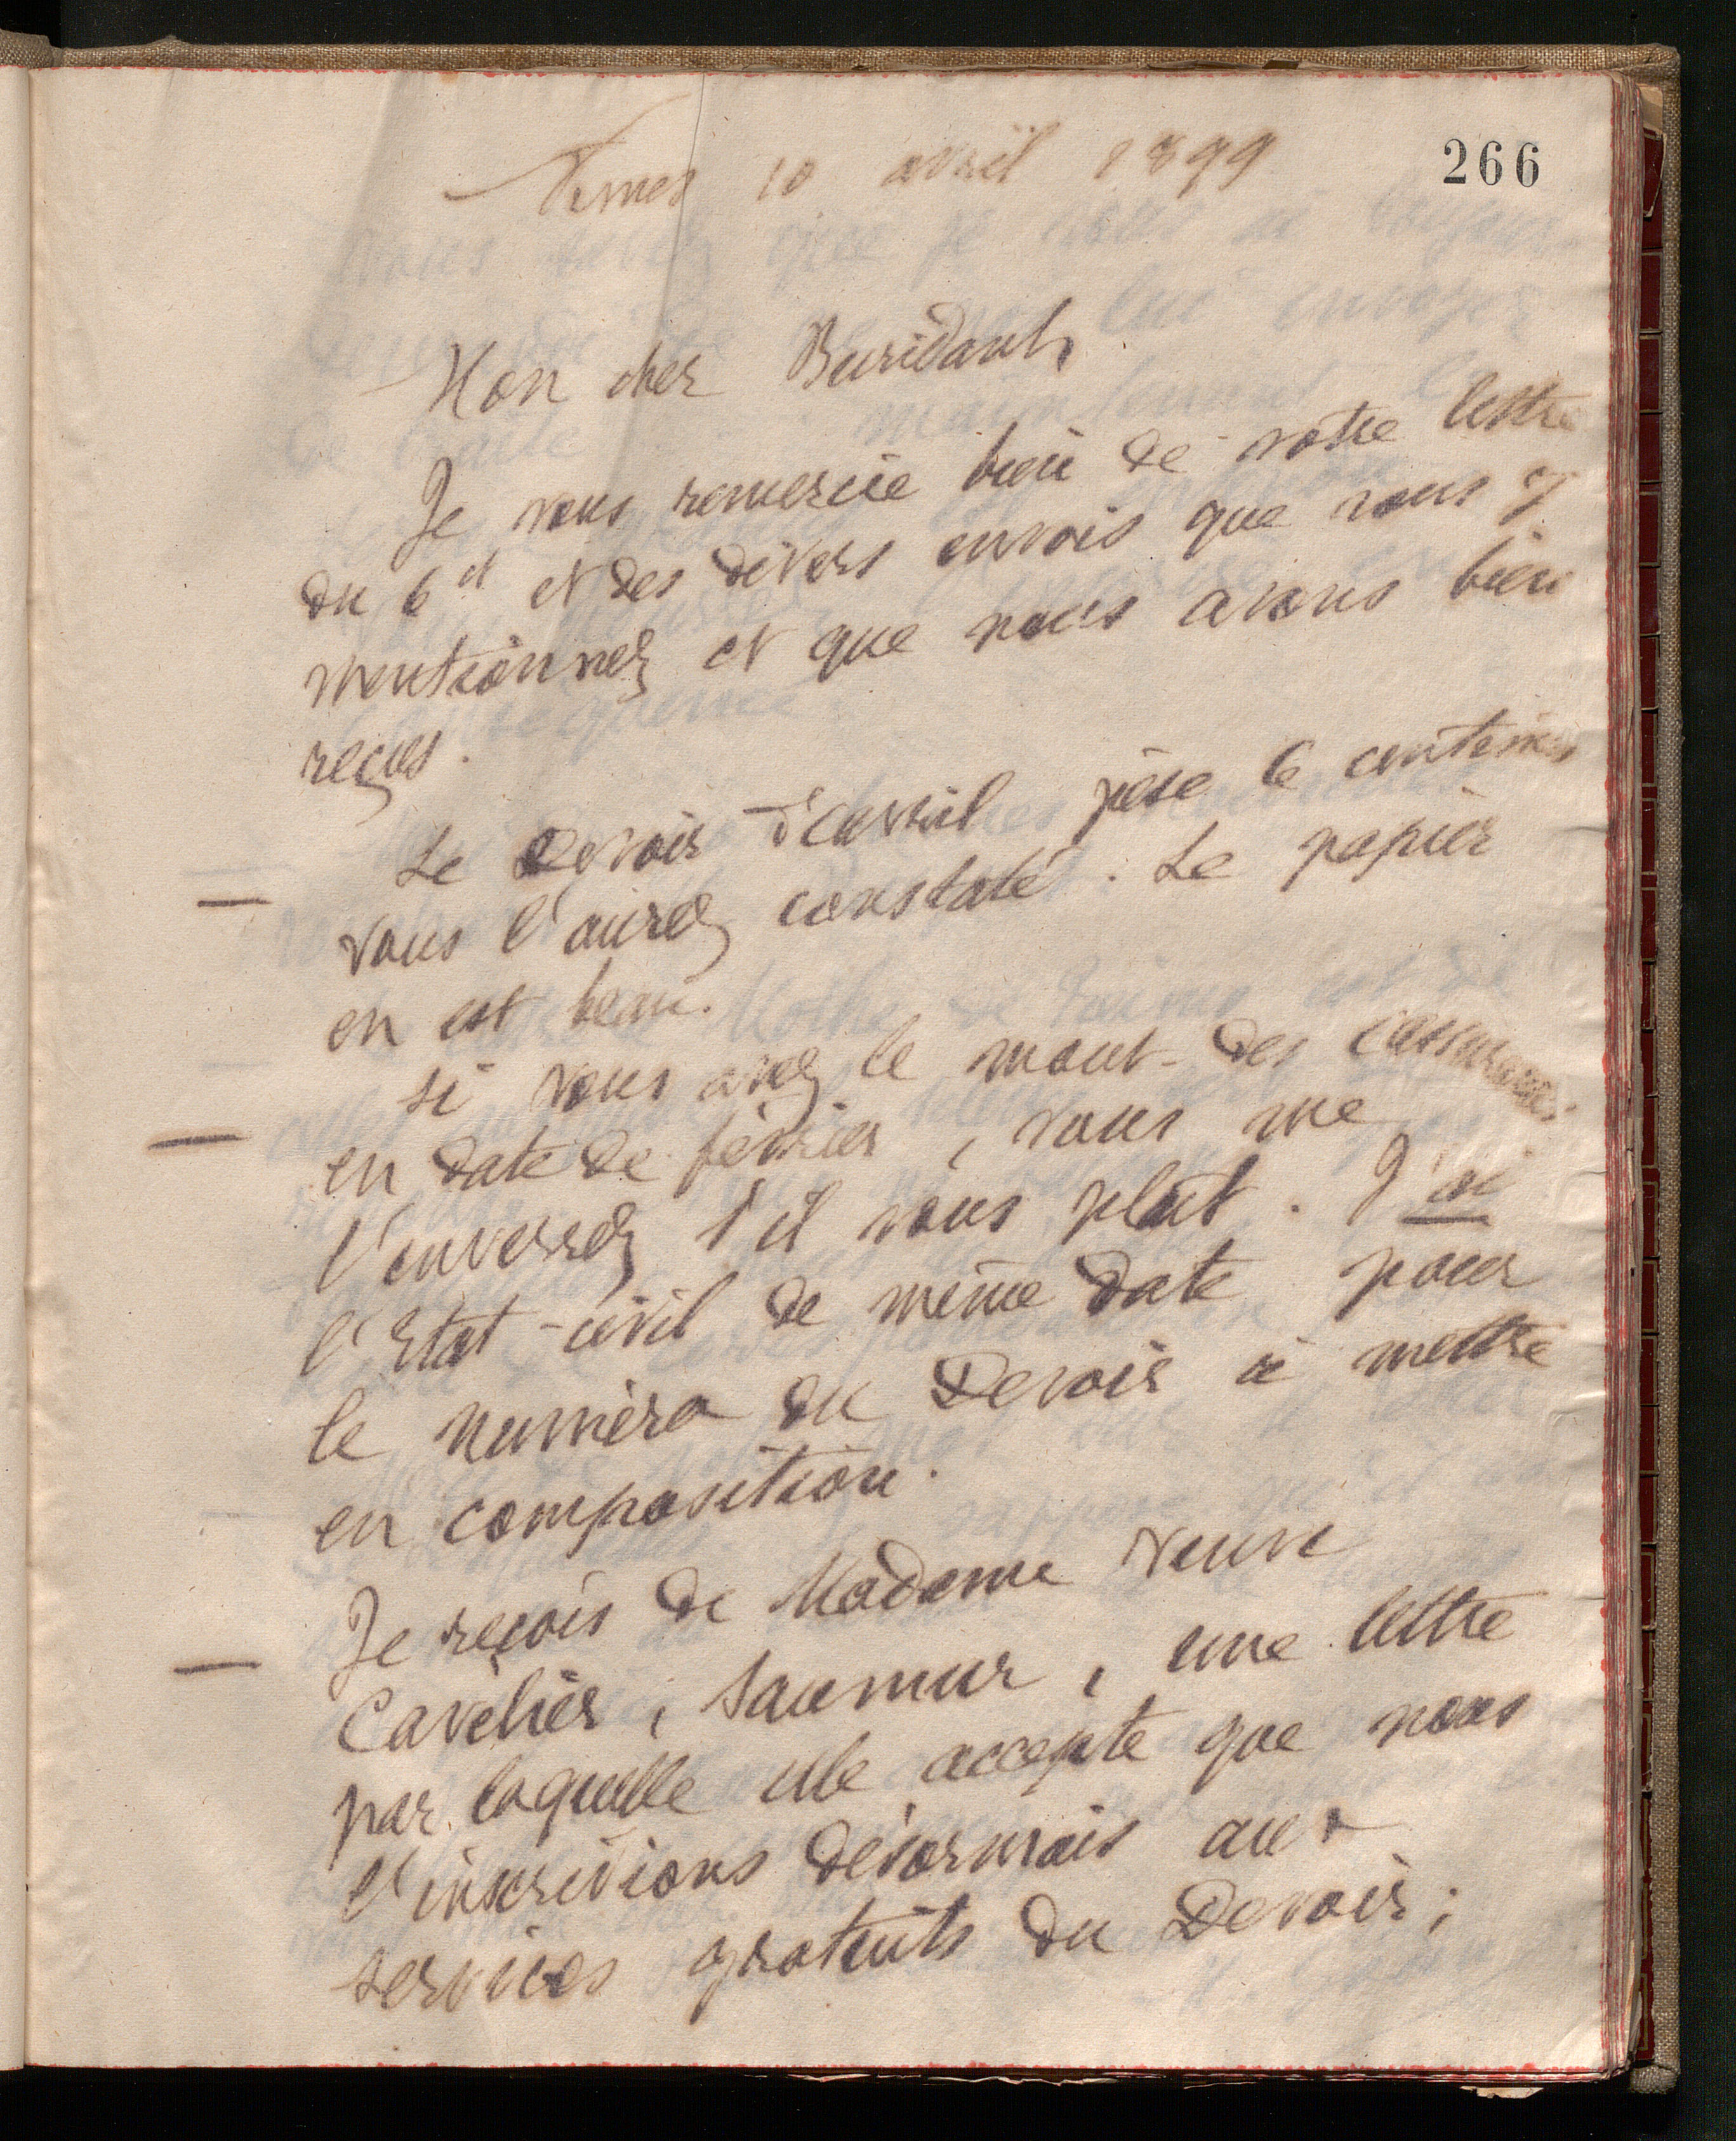 266
Nimes 10 avril 1899
Mon cher Buridant,
Je vous remercie bien de votre lettre
du 6 ct et des divers envois que vous y
mentionnez et que nous avons bien
reçus.
Le Devoir d'avril pèse 6 centimes
vous l'aurez constaté. Le papier
en est beau.
si vous avez le mouv- des assurances
en date de février, vous me
l'enverrez s'il vous plait. J'ai
l'Etat-civil de même date pour
le numéro du Devoir à mettre
en composition.
Je reçois de Madame veuve
Cavelier, Saumur, une lettre
par laquelle elle accepte que nous
l'inscrivions désormais aux
services gratuits du Devoir;